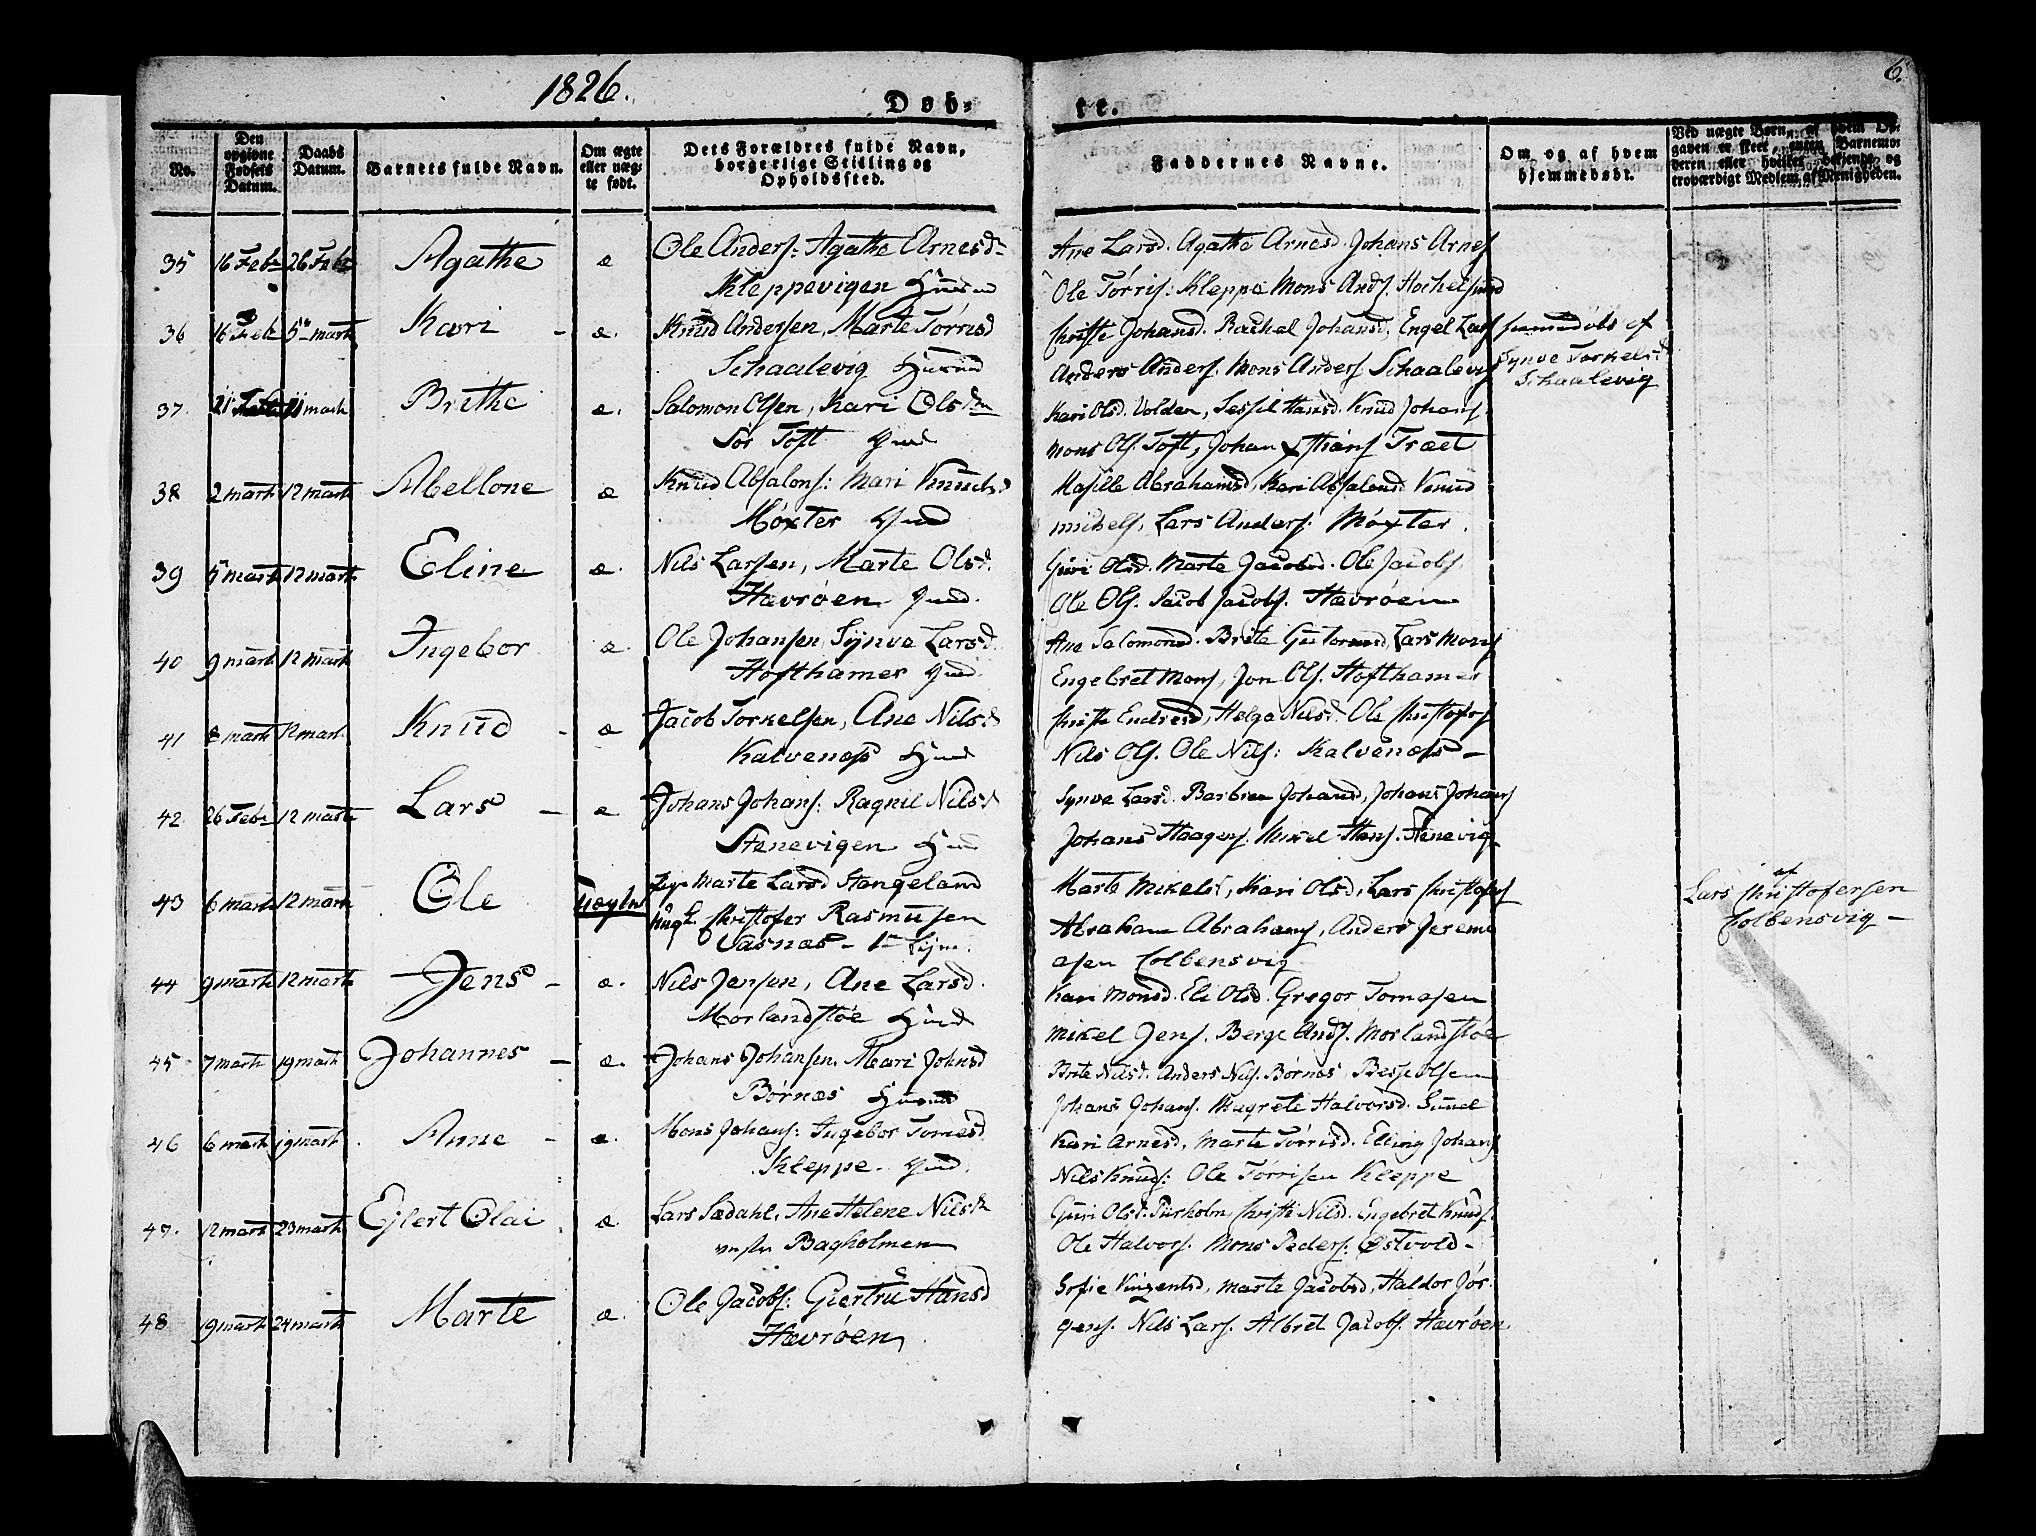 1826.
6.
Døb-
te.
No.
Den
opgivne
Fødsels
Datum.
Daabs
Datum.
Barnets fulde Navn.
Om ægte
eller uæg-
te født.
Dets Forældres fulde Navn,
borgerlige Stilling og
Opholdssted.
Faddernes Navne.
Om og af hvem
hjemmedøbt.
Ved uægte Børn, af hvem Op-
gaven er skeet, enten Barnemo-
deren eller hvilket bekjendt og
troværdigt Medlem af Menigheden.
35 16 Feb 26 Feb Agathe æ Ole Anders: Agathe Arnesd
Kleppevigen
Ane Larsd. Agathe Arnesd. Johans Arnes
Ole Tørris: Kleppe Mons Ands.
36 16 Feb 5 marts Kari æ. Knud Andersen, Marte Tørrisd
Schaalevig
Christe Johansd. Rachal Johansd, Engel Lars
Anders Anders. Mons Anders Schaalevig
af
Synve Torkelsd
Schaalevig
37. 21 11 marts Brithe æ. Salomon Olsen, Kari Olsd
Sør Toft
Kari Olsd. Volden, Sessil Hansd. Knud Johans
Mons Ols Toft, Johan Træet
38 2 marts 12 marts Mellone æ Knud Absalons: Mari Knudsd
Møxter
Abrahamsd, Kari Absalonsd Knud
mikels, Lars Anders: Møxter.
39 5 marts 12 marts Eline æ. Nils Larsen, Marte Olsd.
Hævrøen
Guri Olsd. Marte Jacobsd. Ole Jacobs.
Ole Ols. Jacob Jacobs. Hævrøen
40 9 marts 12 marts Ingebor æ Ole Johansen, Synve Larsd.
Hofthamer
Ane Salomonsd. Brite Guttormsd, Lars Mons
Engebret Mons, Jon Ols. Hofthamer
41 8 marts 12 marts Knud æ Jacob Torkelsen, Ane Nilsd
Kalvenæss
Christe Endresd, Helga Nilsd. Ole Christofs
Nils Ols. Ole Nils: Kalvenæss
42 26 Feb 12 marts Lars æ Johans Johans: Ragnil Nilsd
Stenevigen
Synve Larsd. Barbru Johansd, Johans Johans
Johans Haagens. Mikel Hans. Stenevig
43 6 marts 12 marts Ole uægte Pige Marte Larsd Stangeland
Ungk. Christofer Rasmusen
Vasnæs
Marte Mikelsd, Kari Olsd, Lars Christofers
Abraham Abrahams, Anders Jeremi
asen Colbensvig
af
Lars Christofersen
Colbensvig
44 9 marts 12 marts Jens æ. Nils Jensen, Ane Larsd.
Mørlandstøe
Kari Monsd. Eli Olsd. Gregor Tomasen
Mikel Jens. Berge Ands. Morlandstøe
45 7 marts 19 marts Johannes æ. Johans Johansen. Mari Johnsd
Børnæs
Brite Nilsd. Anders Nils. Børnes Besse Olsen
Johans Johans. Magrete Halvorsd. Sund
46 6 marts 19 marts Anne æ. Mons Johans: Ingebor Tomesd
Kleppe
Kari Arnesd. Marte Tørrisd. Elling Johans
Nils Knuds: Ole Tørrisen Kleppe
47. 12 marts 23 marts Ejlert Olai æ Lars Sædahl, Ane Helene Nilsd
Bagholmen
Guri Olsd. Purholm Christi Nilsd. Engebret Knuds.
Ole Halvors. Mons Peders: Østvold
48 19 marts 24 marts Marte æ. Ole Jacobs: Giertru Hansd
Hævrøen
Sofie Vinzentsd, Marte Jacobsd, Haldor Jør-
gens. Nils Lars. Albret Jacobs. Hævrøen